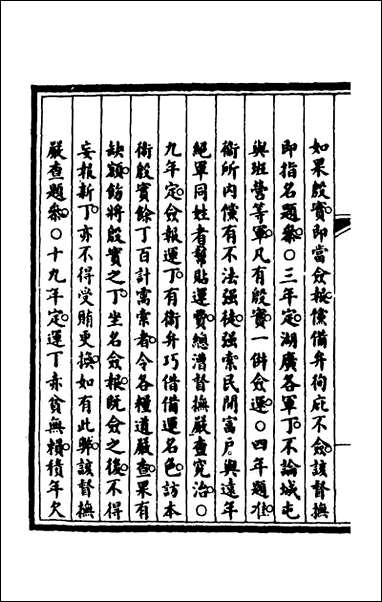 如果殷實即當僉報儻備弁徇庇不僉該督撫
即指名題叅○三年定湖廣各軍丁不論城屯
與班營等軍凡有殷實一併僉運○四年題准
衞所內儻有不法强徒强索民間富戶與遠年
絕軍同姓者幫貼運費總漕督撫嚴查究治○
九年定僉報運丁有衞弁巧借備運名色訪本
衞殷實餘丁百計需索者令各糧道嚴查果有
缺額飭將殷實之丁坐名僉報旣僉之後不得
妄報新丁亦不得受賄更換如有此弊該督撫
嚴查題叅○十九年定運丁赤貧無糧積年欠